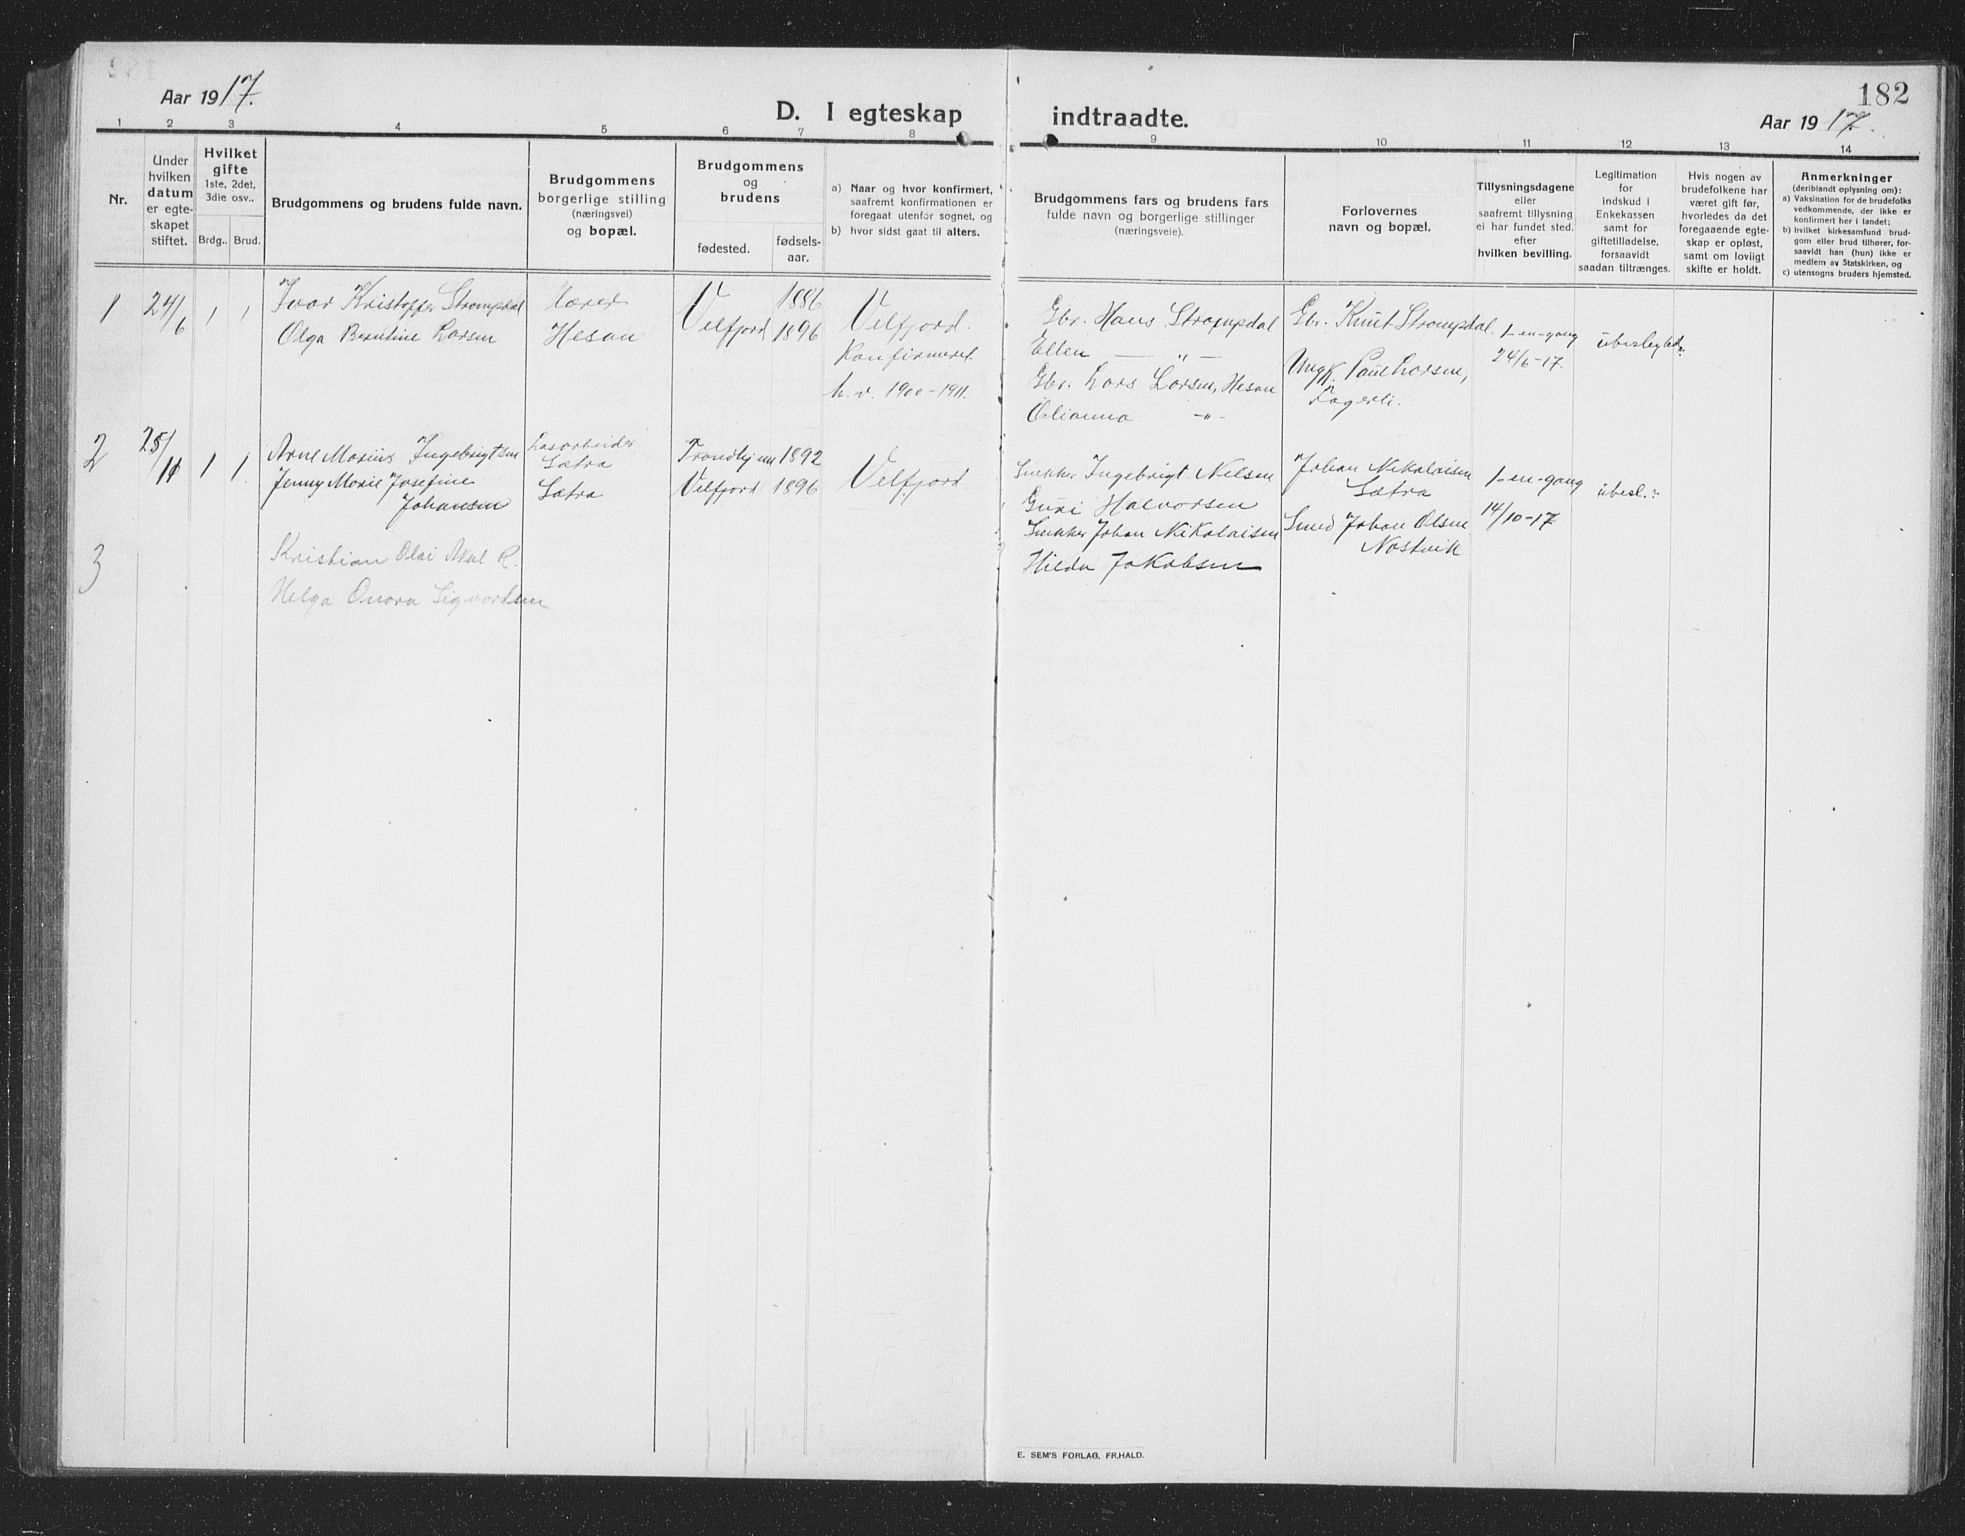 Aar 1917.
182
D. I egteskap indtraadte.
Aar 1917.
1 2 3 4 5 6 7 8 9 10 11 12 13 14
Nr.
Under
hvilken
datum
er egte-
skapet
stiftet.
Hvilket
gifte
1ste, 2det,
3die osv..
Brdg.. Brud.
Brudgommens og brudens fulde navn.
Brudgommens
borgerlige stilling
(næringsvei)
og bopæl.
Brudgommens
og
brudens
fødested.
fødsels-
aar.
a) Naar og hvor konfirmert,
saafremt konfirmationen er
foregaat utenfor sognet, og
b) hvor sidst gaat til alters.
Brudgommens fars og brudens fars
fulde navn og borgerlige stillinger
(næringsveie).
Forlovernes
navn og bopæl.
Tillysningsdagene
eller
saafremt tillysning
ei har fundet sted.
efter
hvilken bevilling.
Legitimation
for
indskud i
Enkekassen
samt for
giftetilladelse,
forsaavidt
saadan tiltrænges.
Hvis nogen av
brudefolkene har
været gift før,
hvorledes da det
foregaaende egte-
skap er opløst,
samt om lovligt
skifte er holdt.
Anmerkninger
(deriblandt oplysning om):
a) Vaksination for de brudefolks
vedkommende, der ikke er
konfirmert her i landet;
b) hvilket kirkesamfund brud-
gom eller brud tilhører, for-
saavidt han (hun) ikke er
medlem av Statskirken, og
c) utensogns bruders hjemsted.
1 24/6 1 1
Ivar Kristoffer Strompdal
Olga Berntine Larsen
Lærer
Hesan
Velfjord
1886
1896
Velfjord.
Konfirmeret
h. v. 1900-1911.
Gbr. Hans Strompdal
Ellen — " —
Gbr. Lars Larsen, Hesan
Olianna -"-
Gbr. Knut Strompdal.
Ungk. Paul Larsen,
Fagerli.
1-en-gang
24/6-17.
2 25/11 1 1.
Arne Marius Ingebrigtsen
Jenny Marie Josefine
Johansen
Løsarbeider
Sætra
Sætra
Trondhjem 1892
Velfjord 1896
Velfjord
Snekker Ingebrigt Nelsen
Guri Halvorsen
Snekker Johan Nikolaisen
Hilda Jakobsen
Johan Nikolaisen
Sætra
Smed Johan Olsen
Nøstvik
1-en-gang
14/10-17
3
Kristian Olai Aksel R.
Helga Onora Sigvardsen
E. SEM'S FORLAG, FR.HALD.